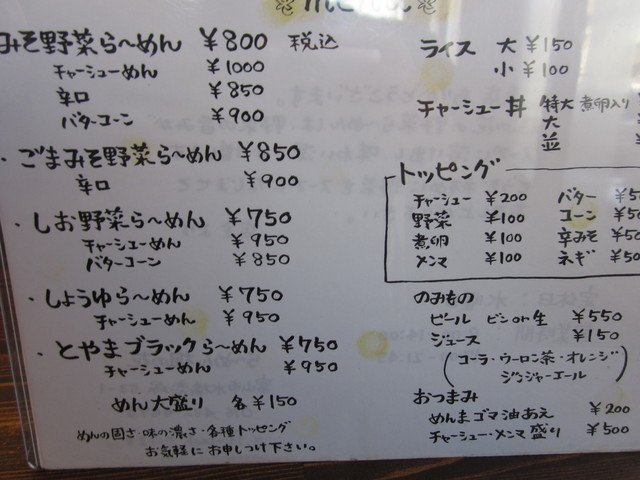 みそ野菜ら～めん ￥800 税込
チャーシューめん ￥1000
辛口 ￥850
バターコーン ￥900
・ごまみそ野菜ら～めん ￥850
辛口 ￥900
・しお野菜ら～めん ￥750
チャーシューめん ￥950
バターコーン ￥850
・しょうゆら～めん ￥750
チャーシューめん ￥950
・とやまブラックら～めん ￥750
チャーシューめん ￥950
めん大盛り 各￥150
めんの固さ・味の濃さ・各種トッピング
お気軽にお申しつけ下さい。
ライス 大 ￥150
小 ￥100
チャーシュー丼 特大 煮卵入り
大
並
トッピング
チャーシュー ￥200 バター
野菜 ￥100 コーン
煮卵 ￥100 辛みそ
メンマ ￥100 ネギ
のみもの
ビール ビンor生 ￥550
ジュース ￥150
(コーラ・ウーロン茶・オレンジ
ジンジャーエール)
おつまみ
めんまゴマ油あえ ￥200
チャーシュー・メンマ盛り ￥500